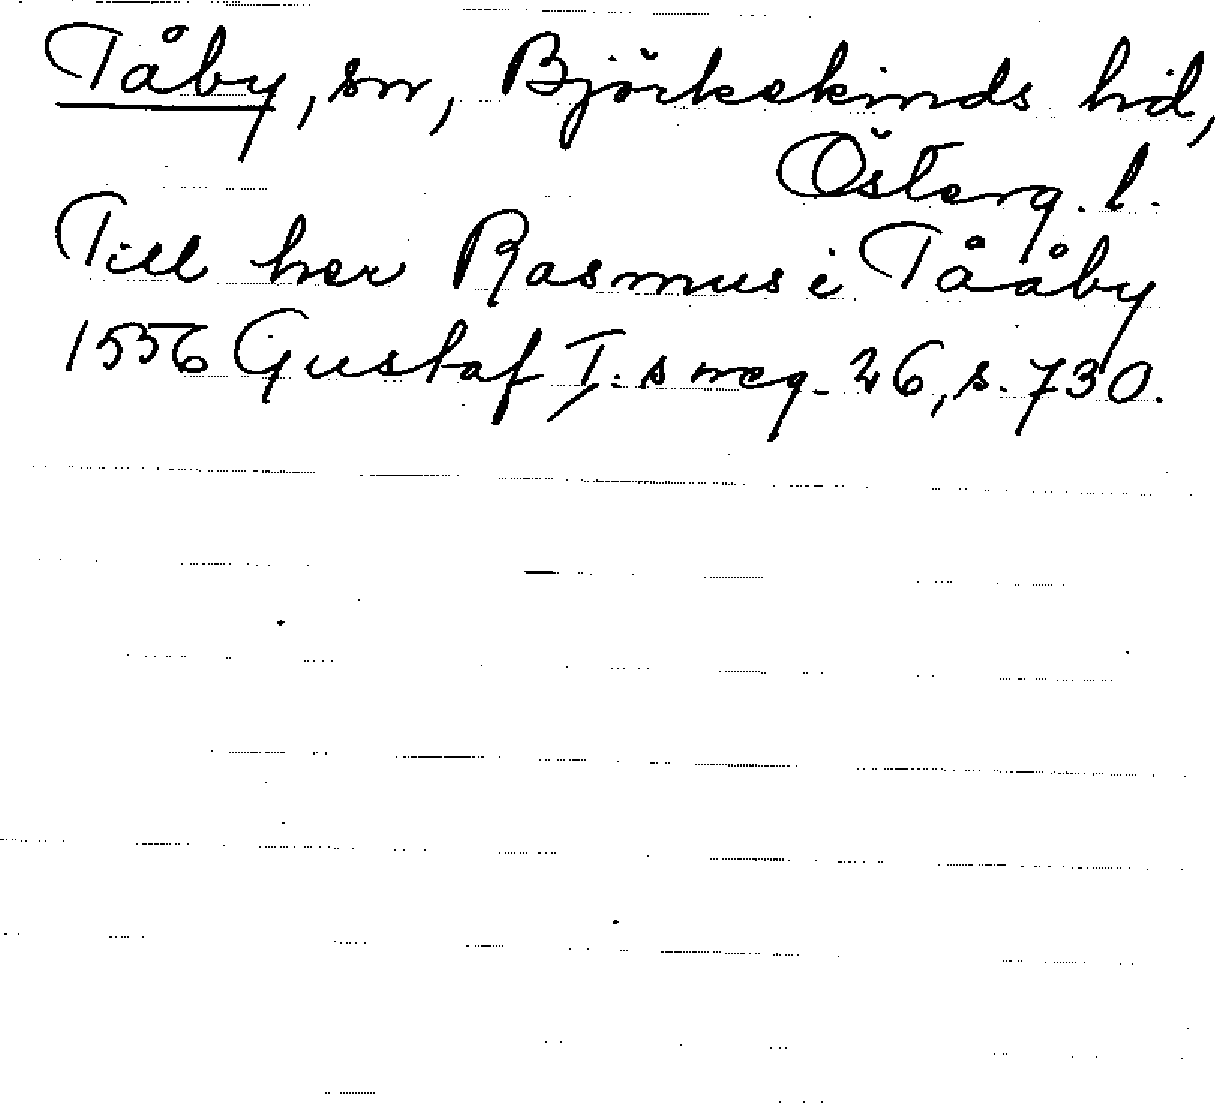 Tåby, sn, Björkekinds hd,
Österg. l.
Till her Rasmus i Tååby
1556 Gustaf I:s reg. 26, s. 730.